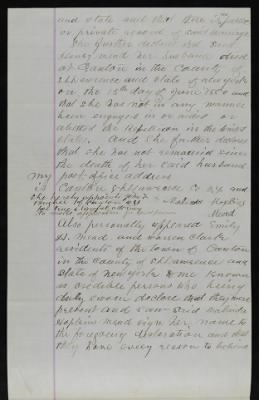 and state and that there is no public
or private record of said marriage
She further declares that said
Henry Mead her husband died
at Canton in the County of
St Lawrence and State of New York
on the 15th day of June 18 and
that she has not in any manner
been engaged in or aided or
abetted the rebellion in the United
States. And she further declares
that she has not remarried since
the death of her said husband
My post office address
is Canton St Lawrence Co N.Y. and
she hereby appoints
Malinda Hopkins
Mead
Also personally appeared Emily
S. Mead and Warren Clark
residents of the town of Canton
in the County of St Lawrence and
State of New York to me known
as credible persons who being
duly sworn declare that they were
present and saw said Malinda
Hopkins Mead sign her name to
the foregoing declaration and that
they have every reason to believe